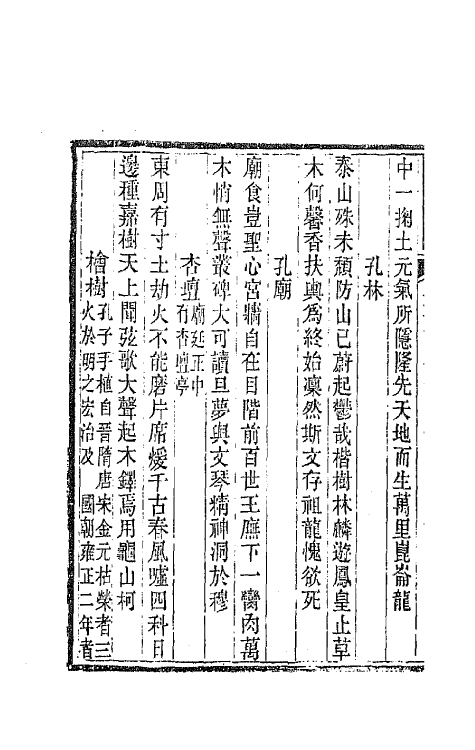 中一掬土元氣所隱隆先天地而生萬里崑崙龍
孔林
泰山殊未頹防山已蔚起鬱哉楷樹林麟遊鳳皇止草
木何馨香扶輿爲終始凜然斯文存祖龍愧欲死
孔廟
廟食豈聖心宮牆自在目階前百世王廡下一臠肉萬
木悄無聲叢碑大可讀旦夢與文琴精神洞於穆
杏壇廟廷正中有杏壇亭
東周有寸土劫火不能磨片席煖千古春風噓四科日
邊種嘉樹天上聞弦歌大聲起木鐸焉用龜山柯
檜樹孔子手植自晉隋唐宋金元枯榮者三火於明之宏治及 國朝雍正二年者